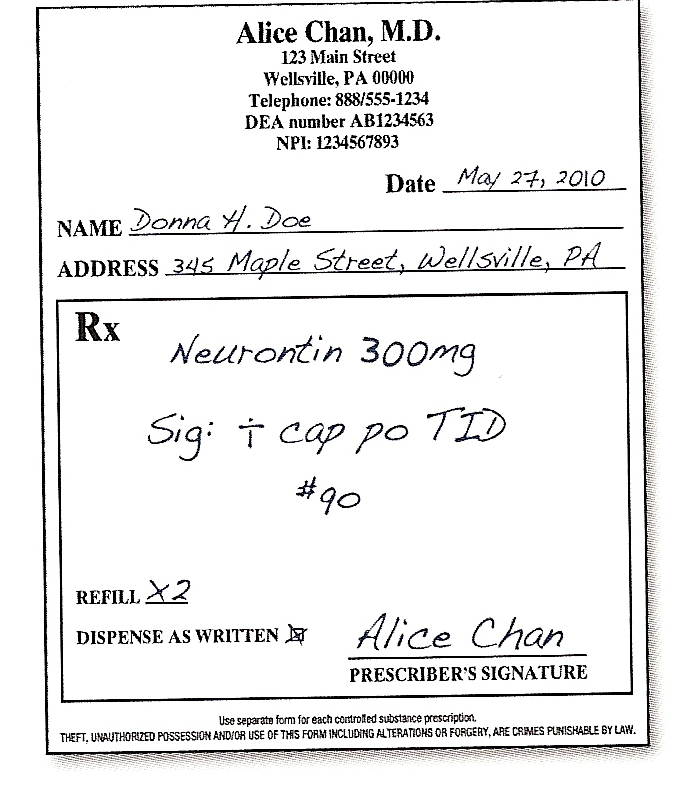 Alice Chan, M.D.
123 Main Street
Wellsville, PA 00000
Telephone: 888/555-1234
DEA number AB1234563
NPI: 1234567893
Date May 27, 2010
NAME Donna H. Doe
ADDRESS 345 Maple Street, Wellsville, PA
Rx
Neurontin 300mg
Sig: † cap po TID
#90
REFILL X2
DISPENSE AS WRITTEN ☒
Alice Chan
PRESCRIBER'S SIGNATURE
Use separate form for each controlled substance prescription.
THEFT, UNAUTHORIZED POSSESSION AND/OR USE OF THIS FORM INCLUDING ALTERATIONS OR FORGERY, ARE CRIMES PUNISHABLE BY LAW.